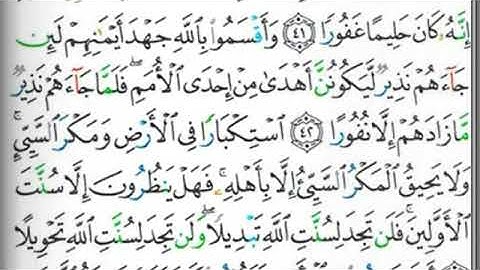 إِنَّهُۥ كَانَ حَلِيمًا غَفُورًا ٤١ وَأَقْسَمُوا۟ بِٱللَّهِ جَهْدَ أَيْمَـٰنِهِمْ لَئِن
جَآءَهُمْ نَذِيرٌ لَّيَكُونُنَّ أَهْدَىٰ مِنْ إِحْدَى ٱلْأُمَمِ ۖ فَلَمَّا جَآءَهُمْ نَذِيرٌ
مَّا زَادَهُمْ إِلَّا نُفُورًا ٤٢ ٱسْتِكْبَارًا فِى ٱلْأَرْضِ وَمَكْرَ ٱلسَّيِّئِ ۚ
وَلَا يَحِيقُ ٱلْمَكْرُ ٱلسَّيِّئُ إِلَّا بِأَهْلِهِۦ ۚ فَهَلْ يَنظُرُونَ إِلَّا سُنَّتَ
ٱلْأَوَّلِينَ ۚ فَلَن تَجِدَ لِسُنَّتِ ٱللَّهِ تَبْدِيلًا ۖ وَلَن تَجِدَ لِسُنَّتِ ٱللَّهِ تَحْوِيلًا